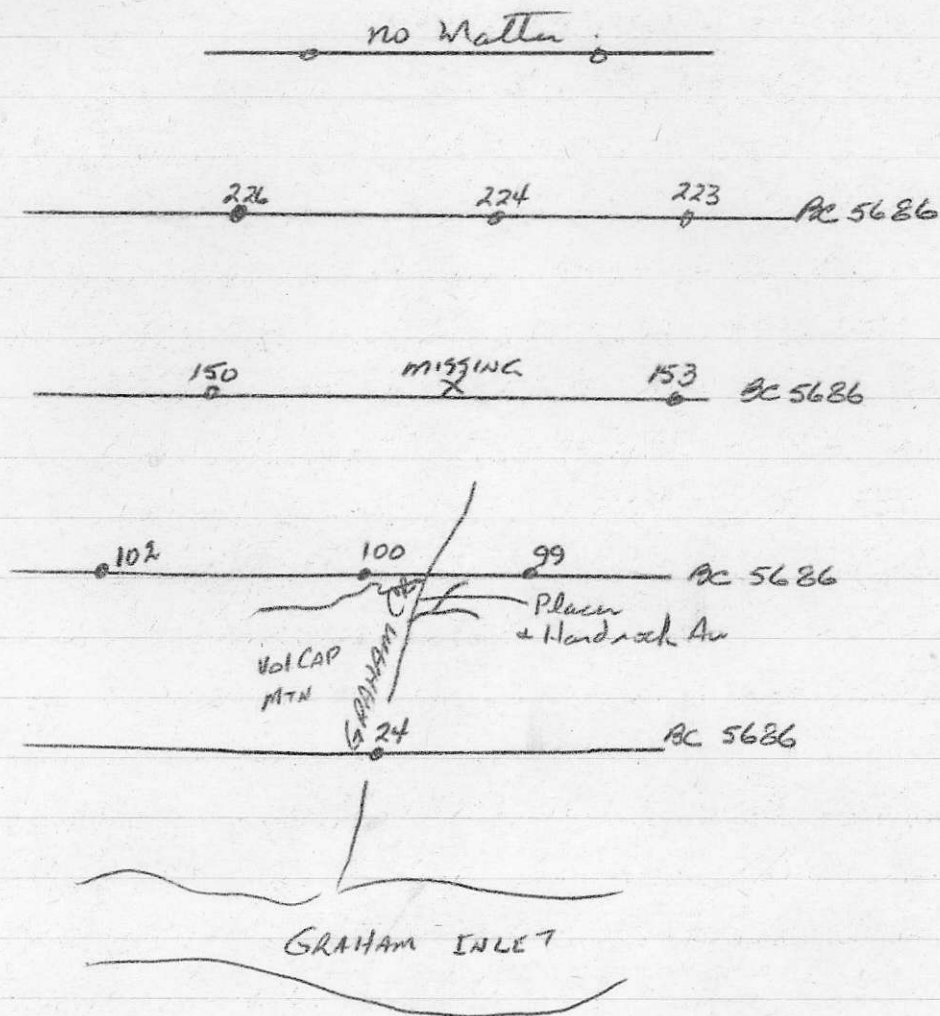 no Matter.
226 224 223 BC 5686
150 MISSING 153 BC 5686
102 100 99 BC 5686
Placer
+ Hardrock Au
Vol CAP
MTN
GRAHAM CK
24 BC 5686
GRAHAM INLET